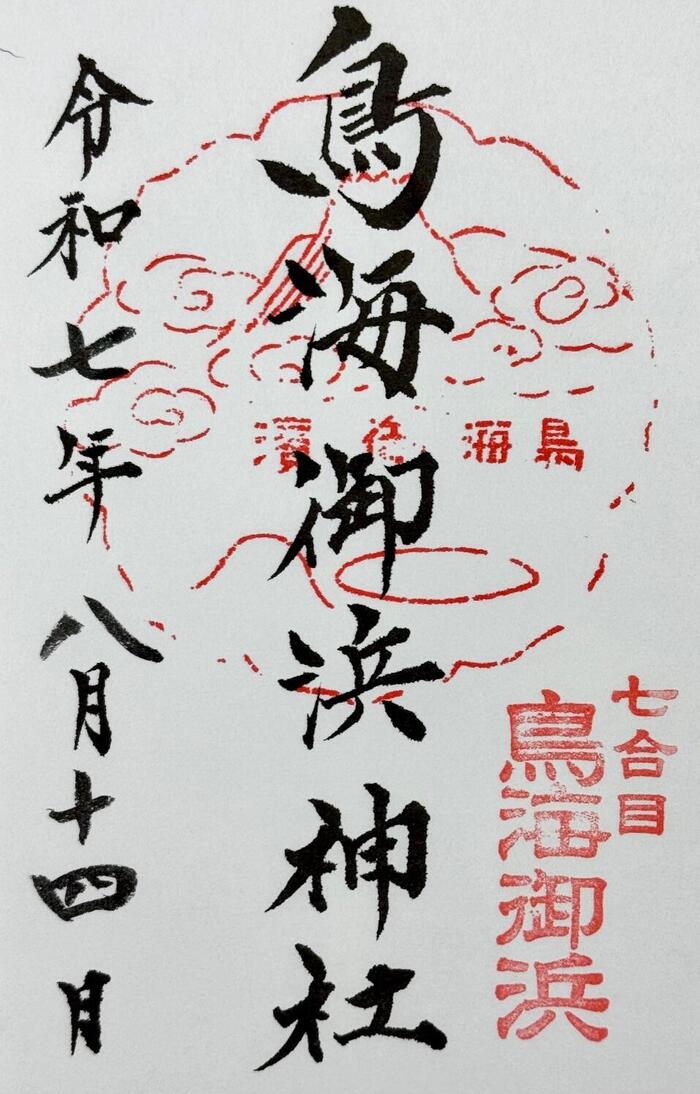 七合目
鳥海御浜
鳥海御浜神社
鳥海御濱
令和七年八月十四月